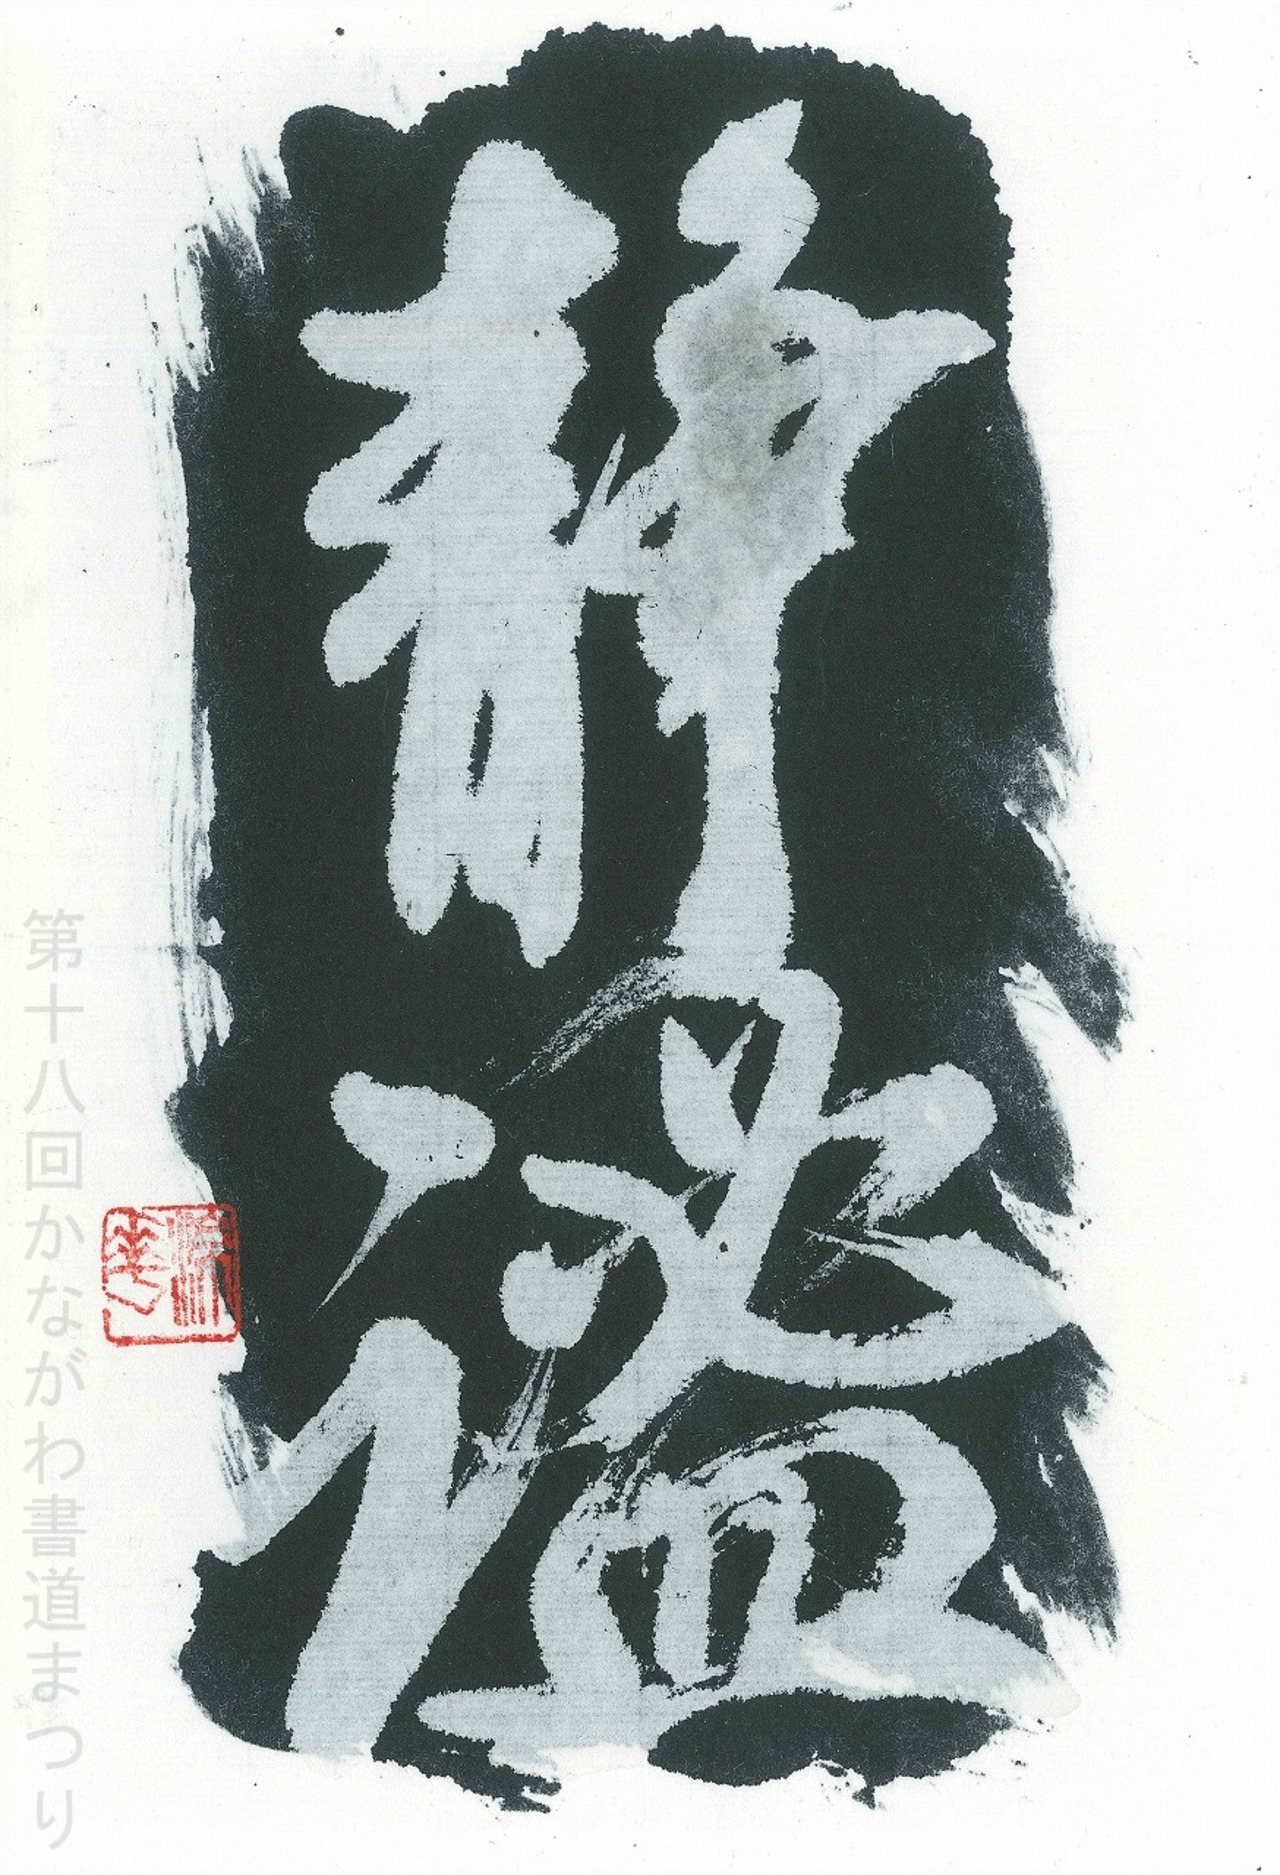 静謐
第十八回かながわ書道まつり